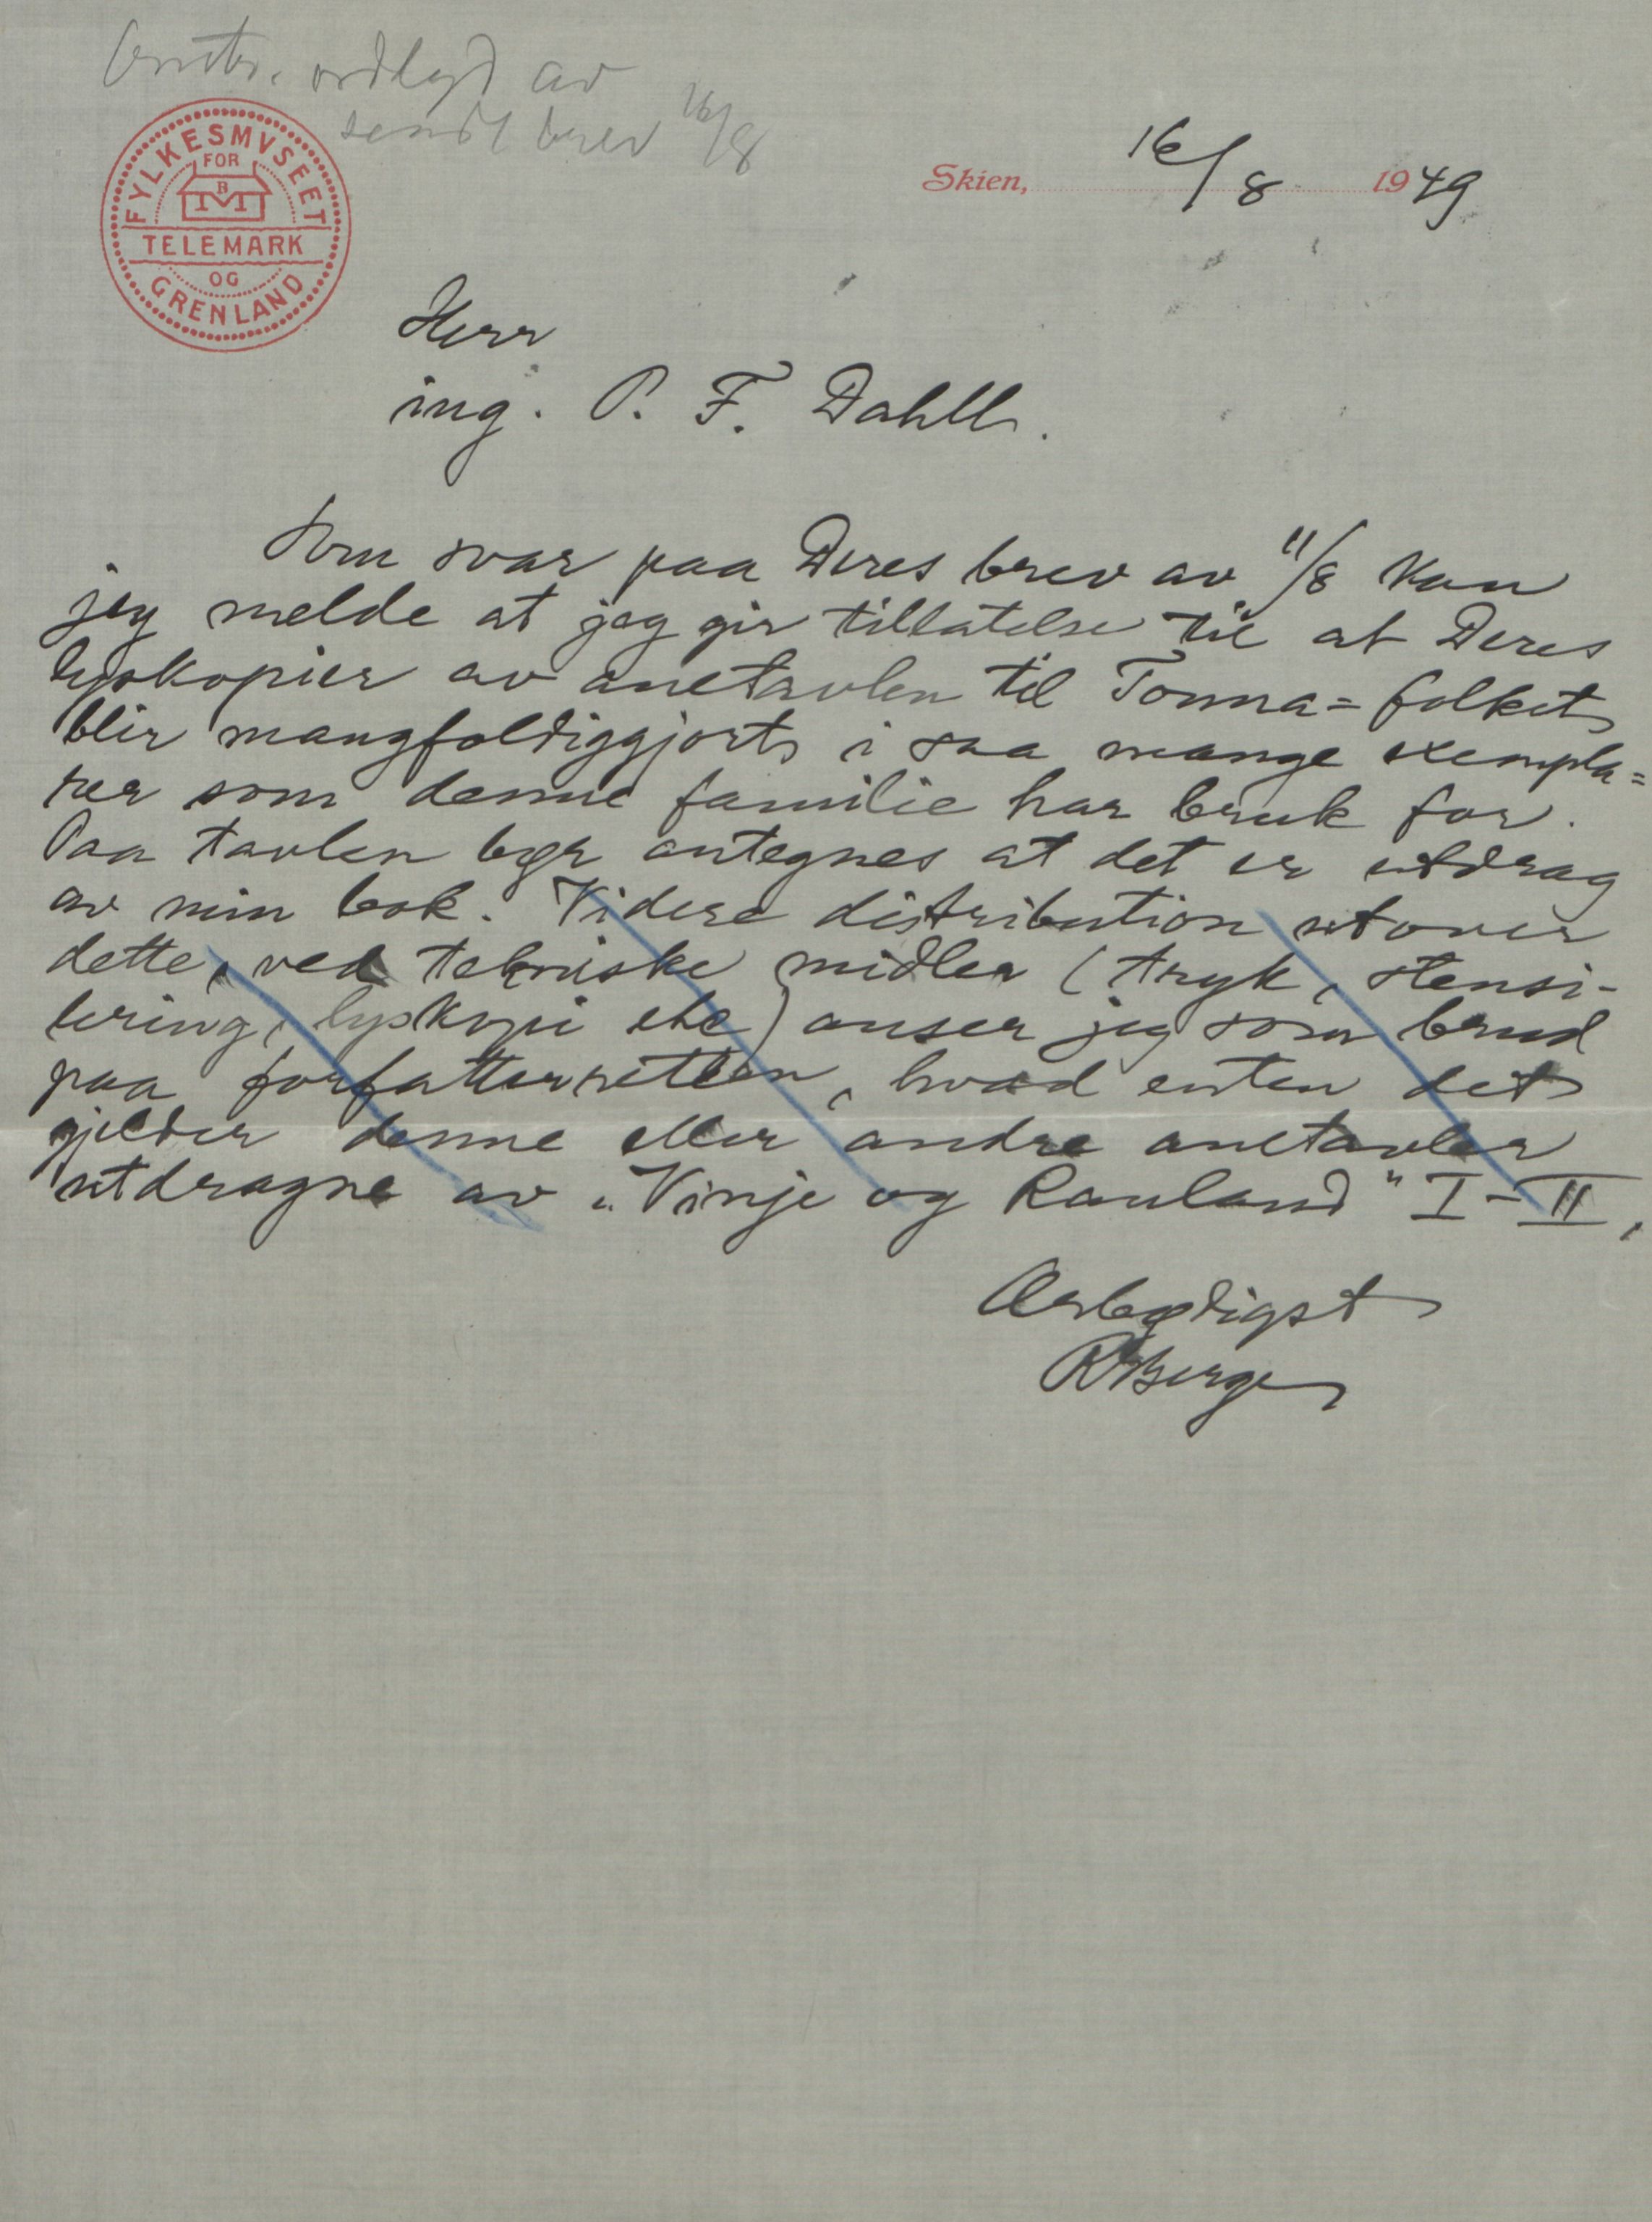 Omtr. ordlyd av
sendt brev 16/8
FYLKESMVSEET
FOR
BM
TELEMARK
OG
GRENLAND
Skien, 16/8 1949
Herr
ing. P. F. Dahll.
Som svar paa Deres brev av 11/8 kan
jeg melde at jeg gir tillatelse til at Deres
lyskopier av anetavlen til Tonna=folket
blir mangfoldiggjort i saa mange exempla=
rer som denne familie har bruk for.
Paa tavlen bør antegnes at det er utdrag
av min bok. Videre distribution utover
dette, ved tekniske midler (tryk, stensi-
lering, lyskopi etc) anser jeg som brud
paa forfatterretten, hvad enten det
gjelder denne eller andre anetavler
utdragne av "Vinje og Rauland" I-II.
Ærbødigst
R Berge